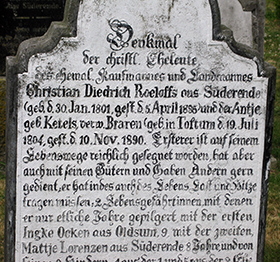 aus Süderende.
Denkmal
der christl. Eheleute
des ehemal. Kaufmannes und Landmannes
Christian Diedrich Roeloffs aus Süderende
(geb. d. 30. Jan. 1801, gest. d. 5. April 1838 und der Antje
geb. Ketels, verw. Braren (geb. in Toftum d. 19. Juli
1804, gest. d. 10. Nov. 1890. Ersterer ist auf seinem
Lebenswege reichlich gesegnet worden, hat aber
auch mit seinen Gütern und Gaben Andern gern
gedient, er hat indes auch des Lebens Last und Hitze
tragen müssen; 2 Lebensgefährtinnen, mit denen
er nur etliche Jahre gepilgert mit der ersten,
Ingke Ocken aus Oldsum, 9, mit der zweiten,
Mattje Lorenzen aus Süderende 8 Jahre und von